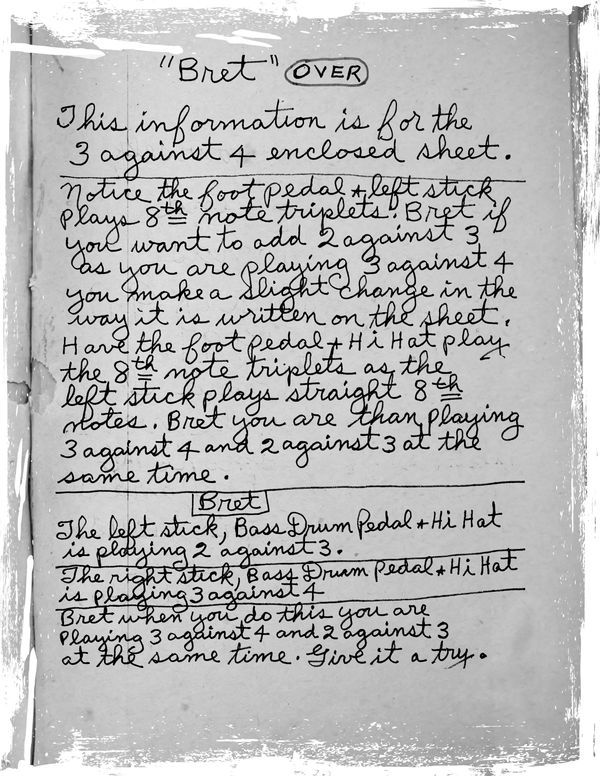 "Bret" OVER
This information is for the
3 against 4 enclosed sheet.
Notice the foot pedal + left stick
plays 8th note triplets. Bret if
you want to add 2 against 3
as you are playing 3 against 4
you make a slight change in the
way it is written on the sheet.
Have the foot pedal + Hi Hat play
the 8th note triplets as the
left stick plays straight 8th
notes. Bret you are than playing
3 against 4 and 2 against 3 at the
same time.
Bret
The left stick, Bass Drum Pedal + Hi Hat
is playing 2 against 3.
The right stick, Bass Drum Pedal + Hi Hat
is playing 3 against 4
Bret when you do this you are
playing 3 against 4 and 2 against 3
at the same time. Give it a try.